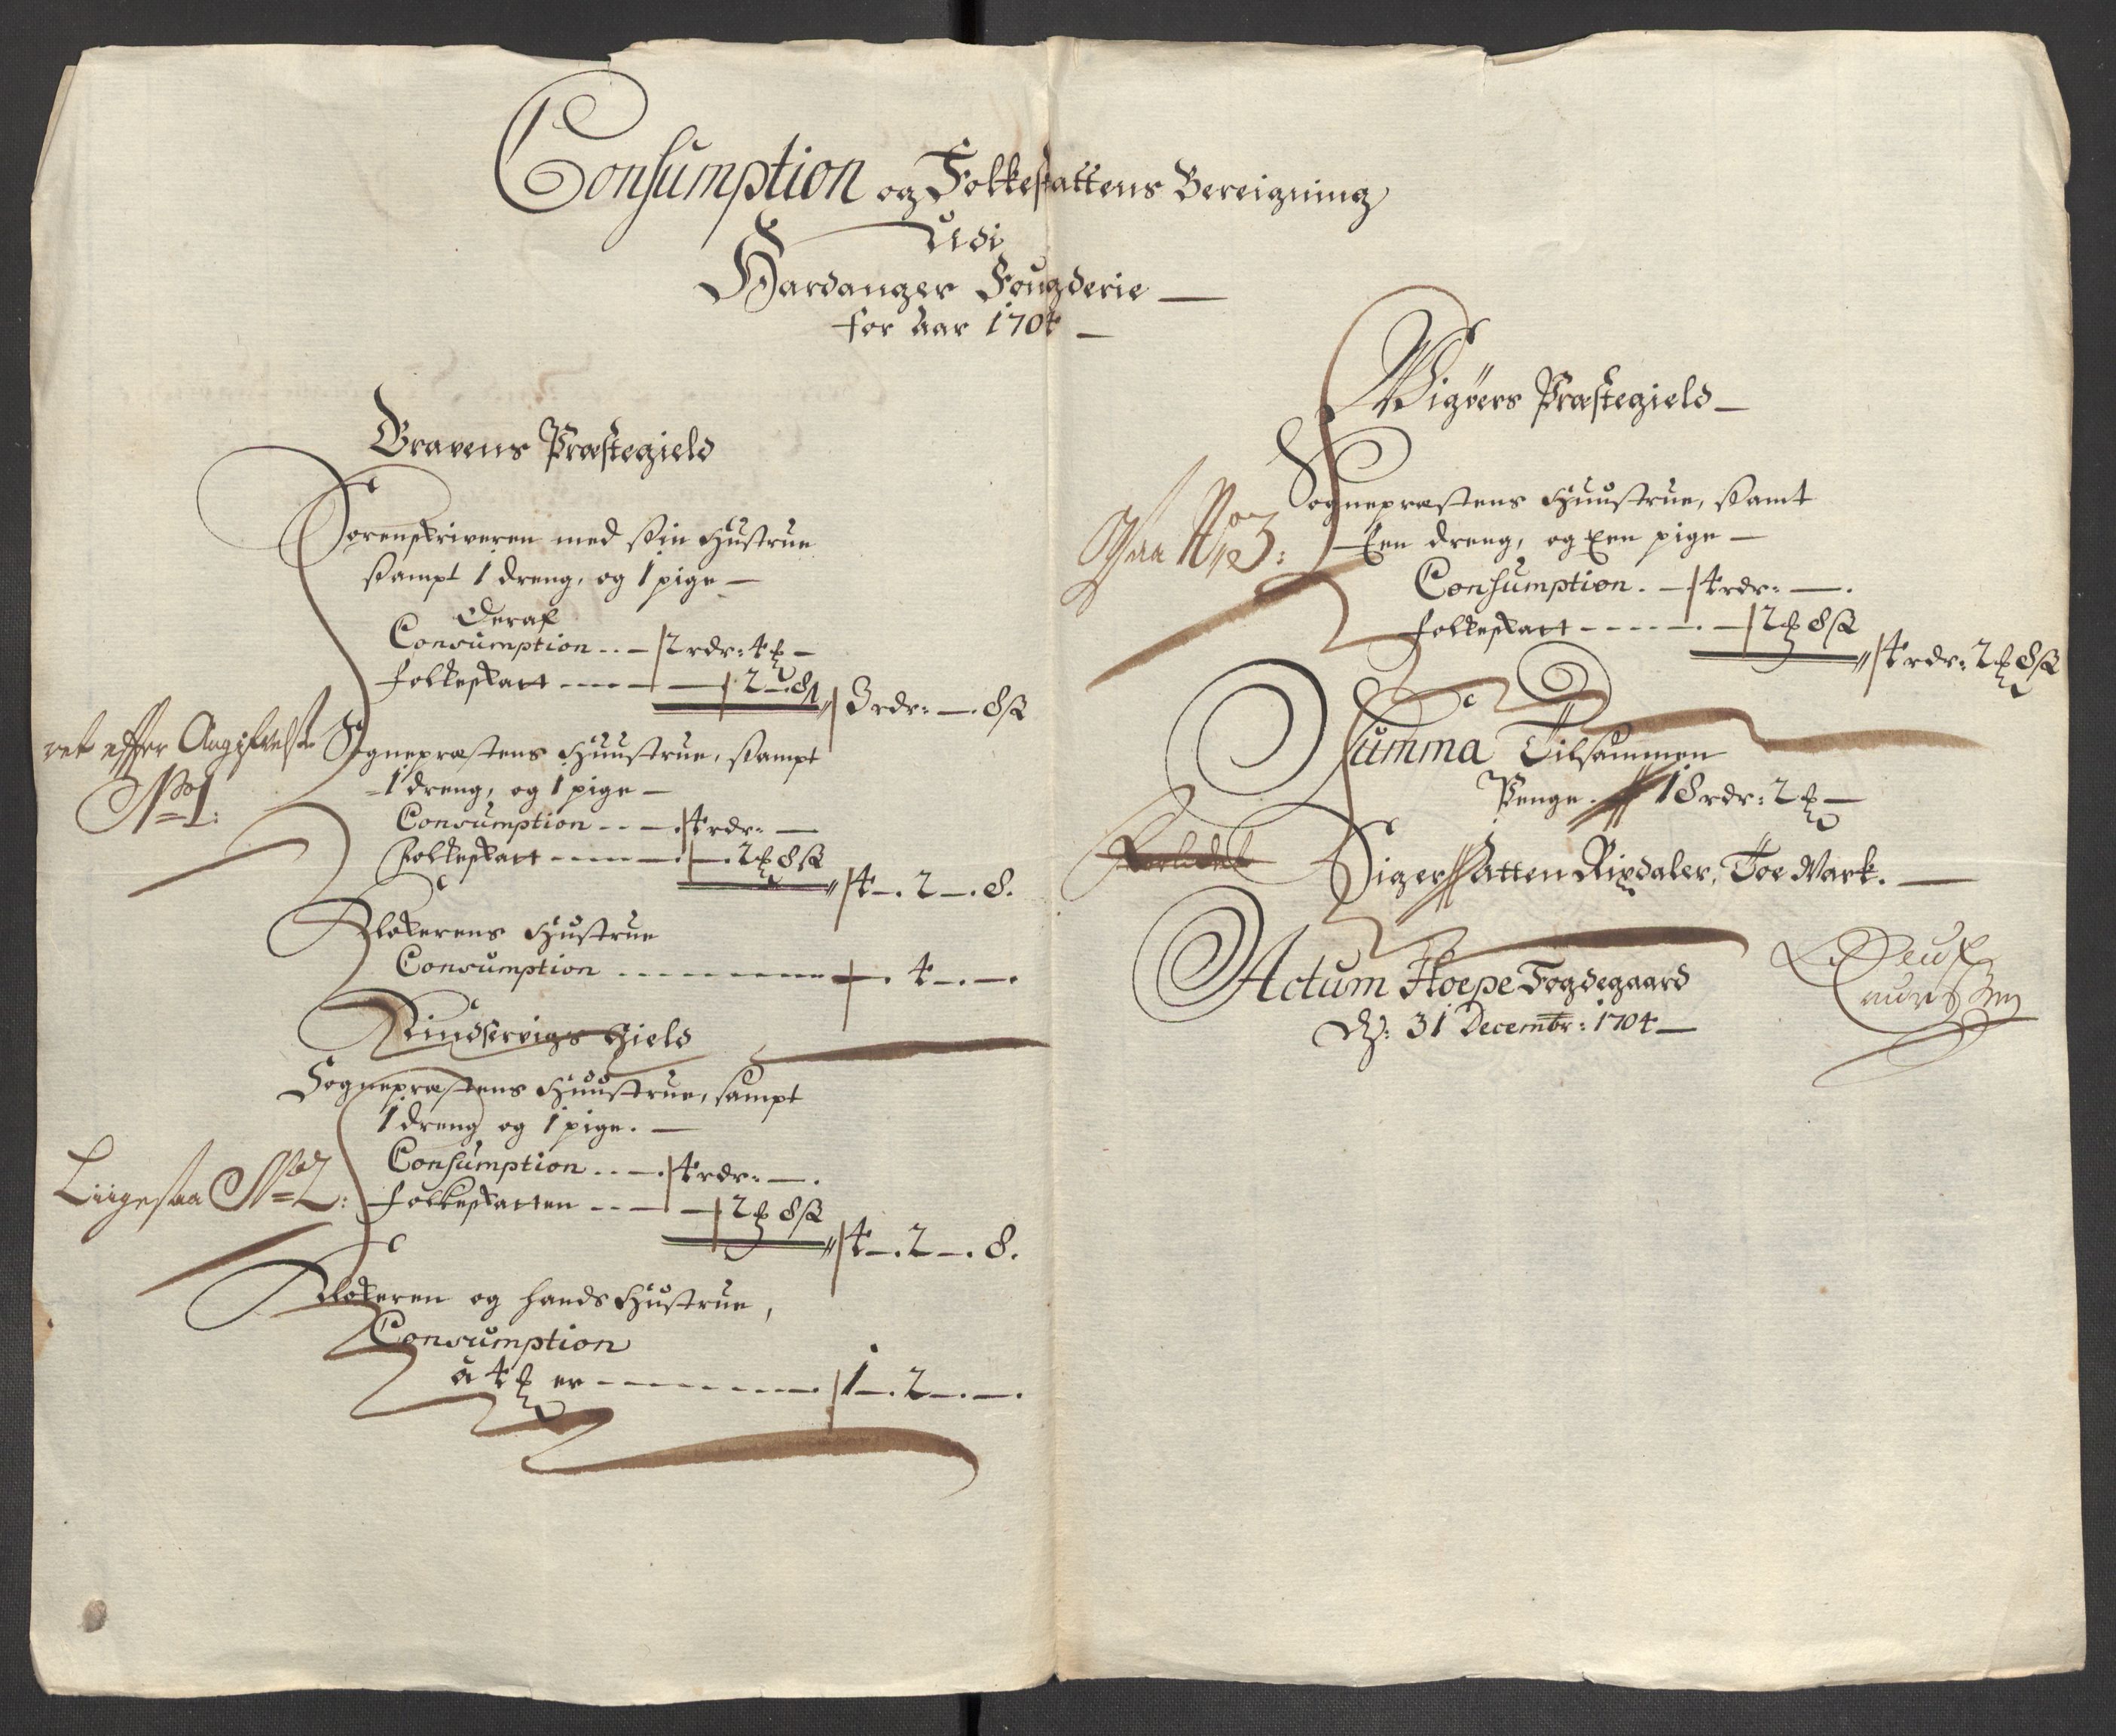 Consumption og Folkeskattens Bereigning
Udi
Hardanger Fougderie
for Aar 1704
Gravens Præstegield
Sorenskriveren med sin Hustrue
sampt 1 dreng, og 1 pige
Deraf
Consumption 2 rdr: 4 mk
Folkeskatt 2. 8 3 rdr: 8 sk
ret effter Angifvelse
No 1:
Sognepræstens Huustrue, sampt
1 dreng, og 1 pige
Consumption 4 rdr:
Folkeskatt 2 mk 8 sk
4. 2. 8.
Klokerens Hustrue
Consumption 4
Kindservigs Gield
Sognepræstens Huustrue, sampt
1 dreng og 1 pige.
Liigesaa No 2:
Consumption 4 rdr:
Folkeskatten 2 mk 8 sk
4. 2. 8.
Klokeren og hands Hustrue,
Consumption
à 4 mk er 1. 2.
Wigøers Præstegield
Sognepræstens Huustrue, samt
Een dreng, og Een pige
No 3:
Consumption. 4 rdr:
Folkeskatt 2 mk 8 sk
4 rdr: 2 mk 8 sk
Summa Tilsammen
Penge. 18 rdr: 2 mk
Siger Atten Rixdaler, Toe Mark.
Actum Hoepe Fogdegaard
d: 31 Decembr: 1704